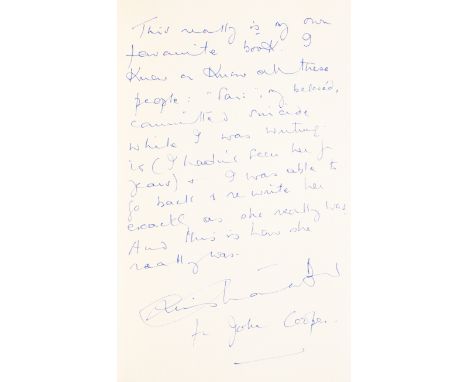 This really is my own
favourite book. I
knew or know all these
people: "Pan", my beloved,
committed suicide
while I was writing
is (I hadn't seen her for
years) & I was able to
go back & re write her
exactly as she really was.
And this is how she
really was.
for John Cooper.